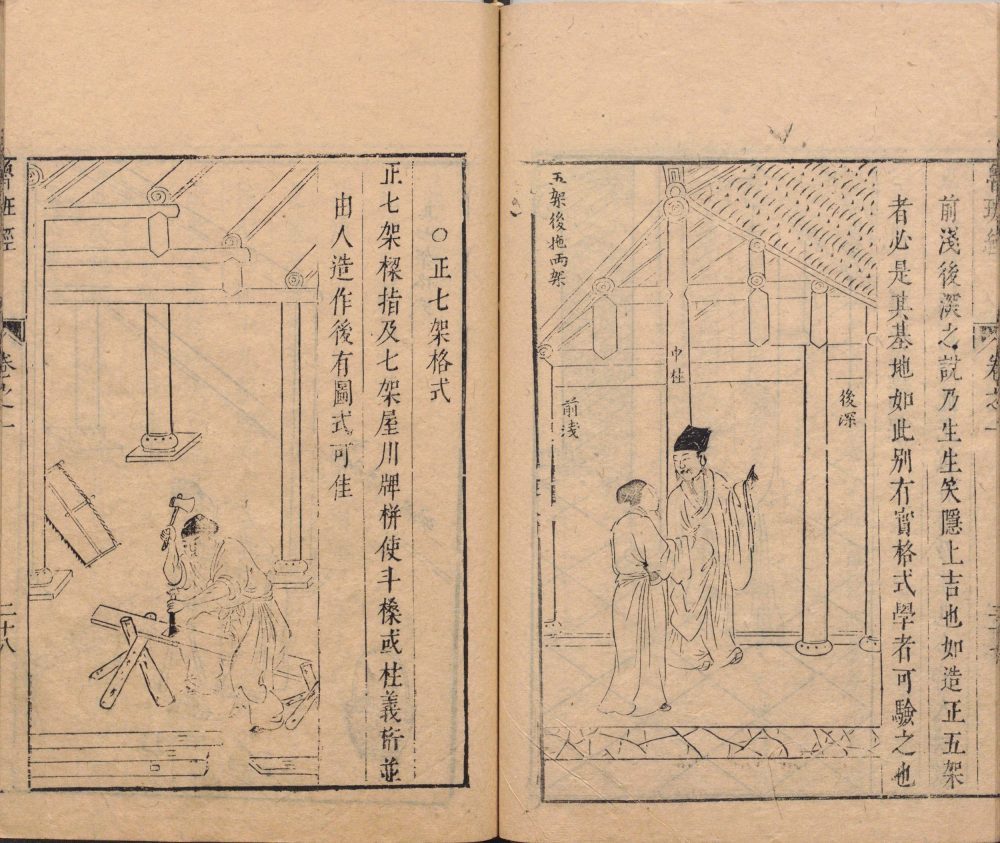 前淺後深之説乃生生笑隱上吉也如造正五架
者必是其基地如此别冇實格式學者可驗之也
後深
中柱
前浅
五架後拖两架
○正七架格式
正七架樑指及七架屋川牌栟使斗槡或柱義桁並
由人造作後有圖式可佳
魯班經
卷之一
二十八